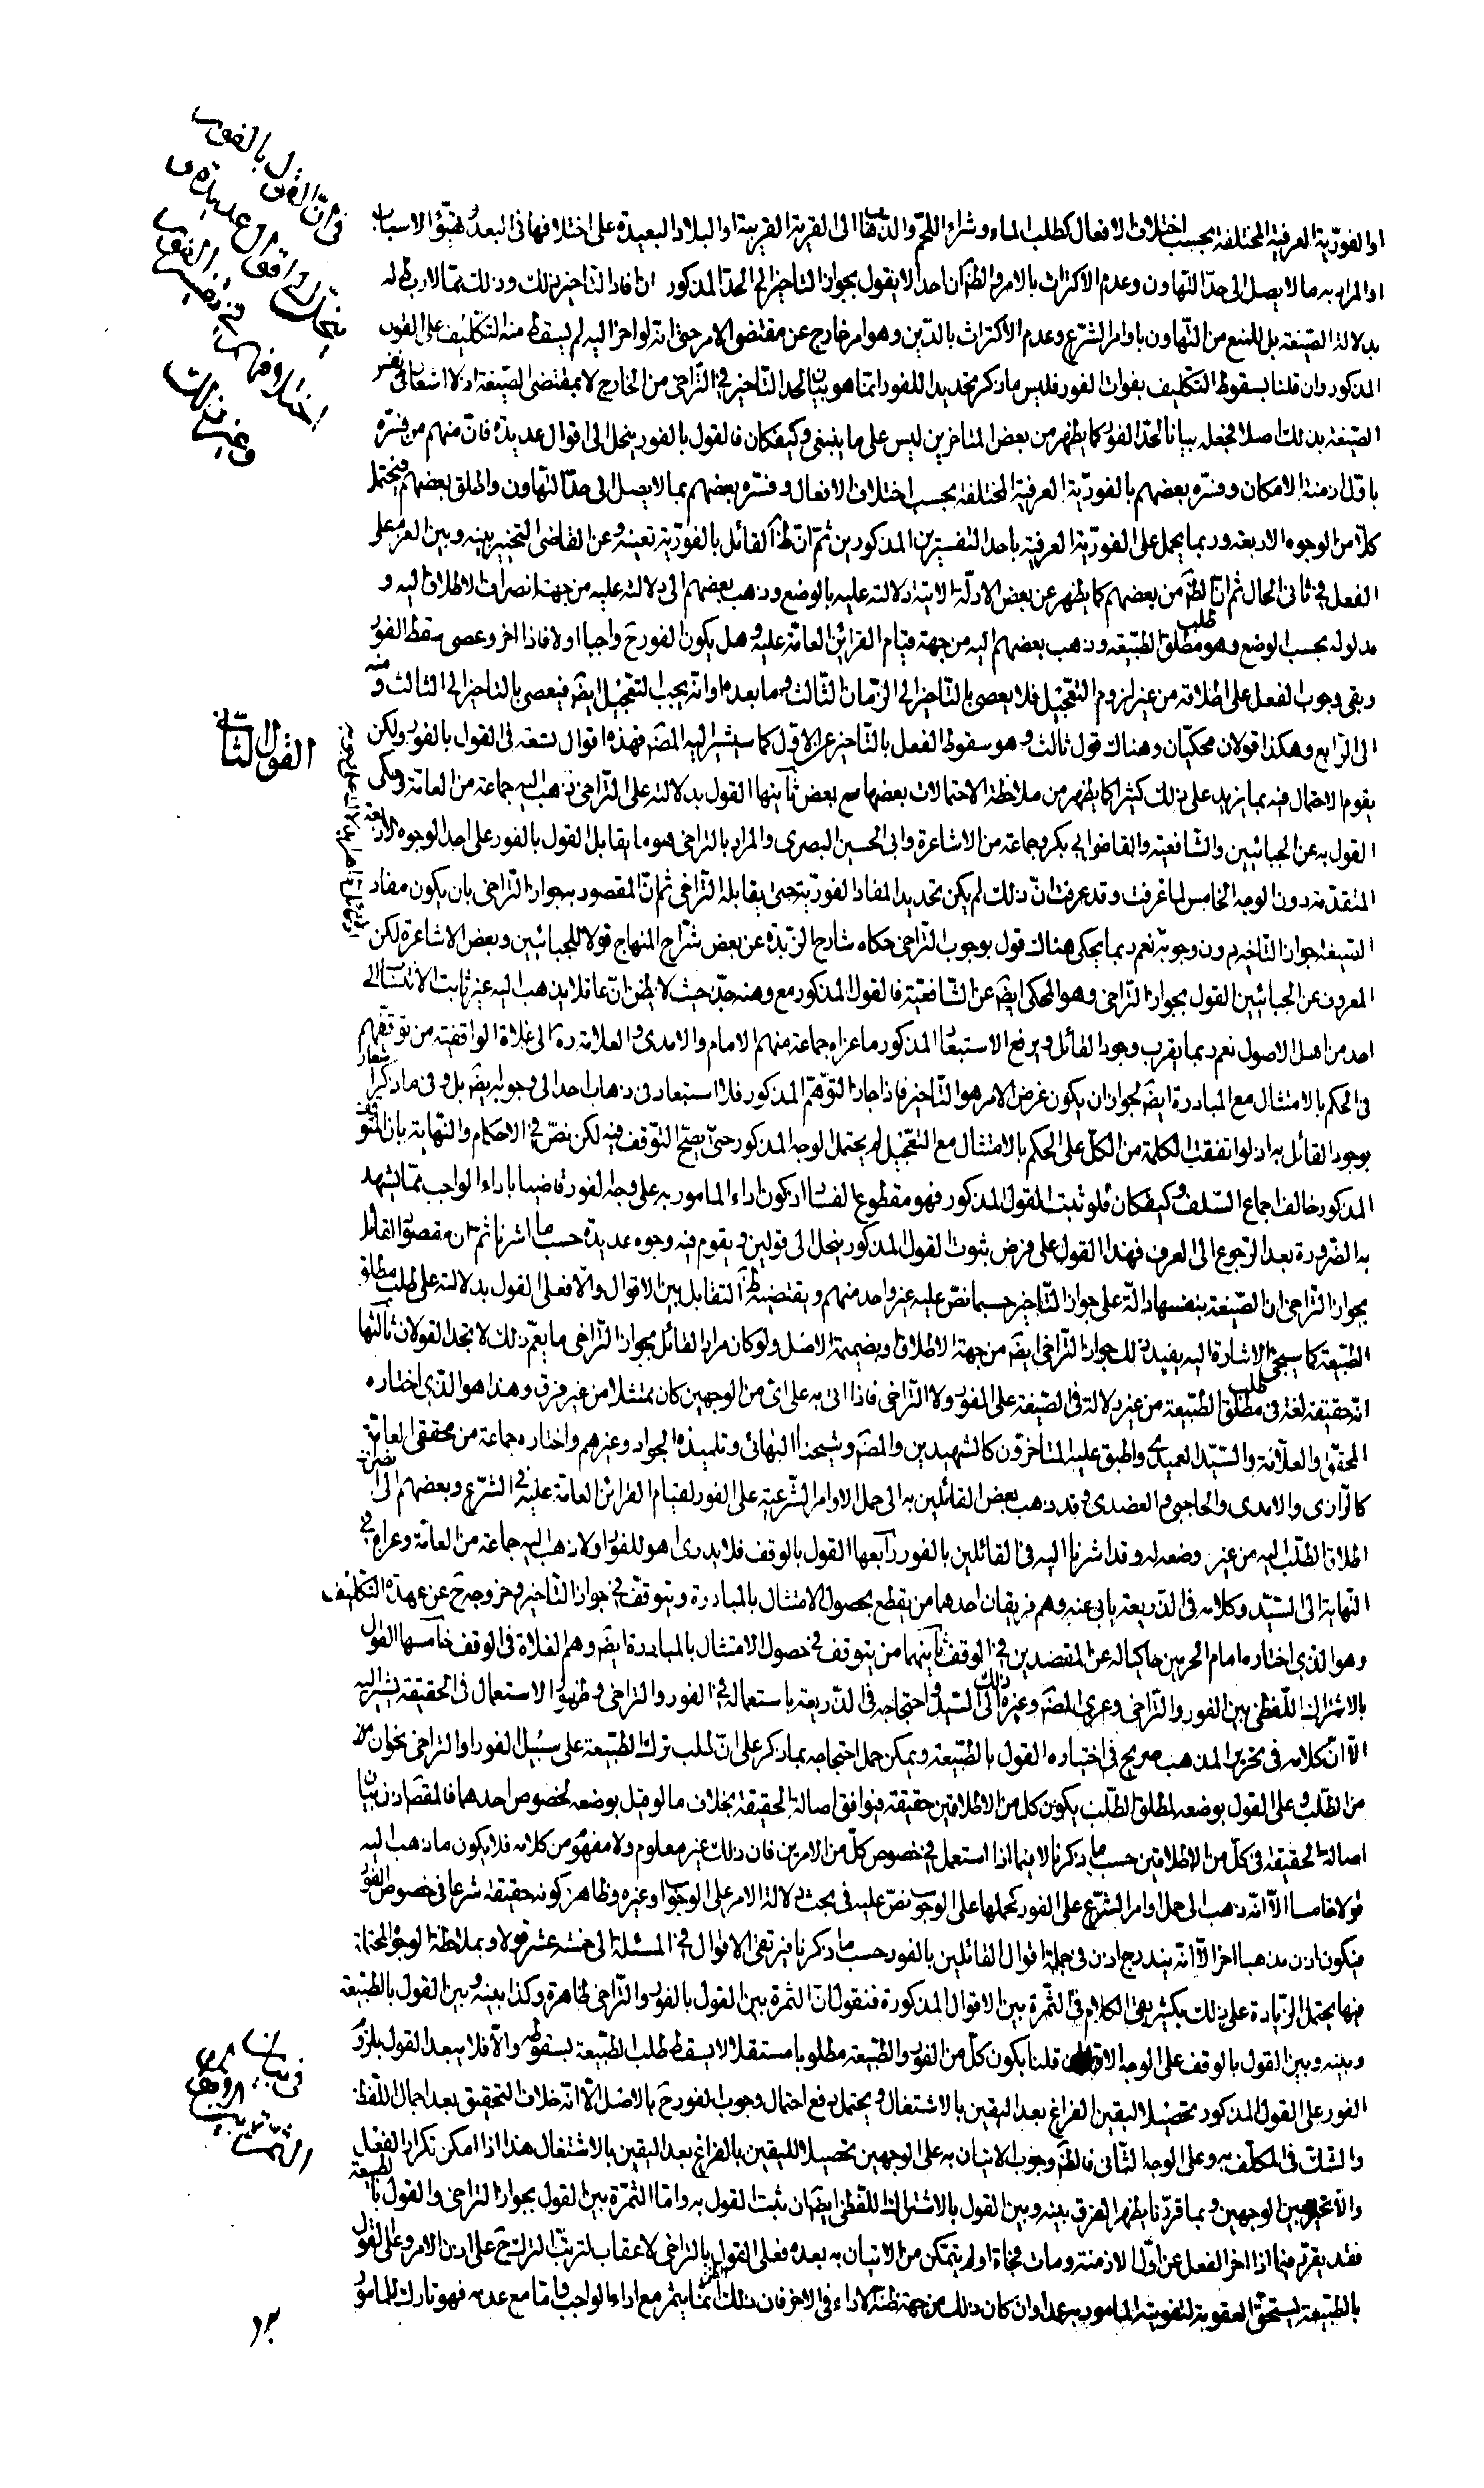 او الفوريّة العرفية المختلفة بحسب اختلاف الافعال كطلب الماء وشراء اللحم والذهاب الى القرية القريبة او البلاد البعيدة على اختلافها في البعد وتهيّؤ الاسباب
او المراد به ما لا يصل الى حدّ التهاون وعدم الاكتراث بالامر والظ ان احدا لا يقول بجواز التاخير الى الحد المذكور اذا افاد التاخير ذلك وذلك ممّا لا ربط له
بدلالة الصّيغة بل للمنع من التّهاون باوامر الشرع وعدم الاكتراث بالدّين وهو امر خارج عن مقتضى الامر حتى انه لو اخر اليه لم يسقط منه التكليف على الفور
المذكور وان قلنا بسقوط التكليف بفوات الفور فليس ما ذكر تحديدا للفور انما هو بيان لحد التّاخير في التّراخي من الخارج لا بمقتضى الصّيغة اذ لا اشعار في نفس
الصّيغة بذلك اصلا فجعله بيانا لحدّ الفور كما يظهر من بعض المتاخرين ليس على ما ينبغي وكيف كان فالقول بالفور ينحل الى اقوال عديدة فانّ منهم من فسّره
باوّل ازمنة الامكان وفسّره بعضهم بالفوريّة العرفيّة المختلفة بحسب اختلاف الافعال وفسّره بعضهم بما لا يصل الى حدّ التهاون واطلق بعضهم فيحتمل
كلّا من الوجوه الاربعة وربما يحمل على الفوريّة العرفية باحد التفسيرين المذكورين ثمّ انّ ظ القائل بالفوريّة تعينه وعن القاضي التخيير بينه وبين العزم على
الفعل في ثاني الحال ثم انّ الظ من بعضهم كما يظهر عن بعض الادلّة الاتية دلالته عليه بالوضع وذهب بعضهم الى دلالته عليه من جهة انصراف الاطلاق اليه و
مدلوله بحسب الوضع وهو مطلق طلب الطبيعة وذهب بعضهم اليه من جهة قيام القرائن العامّة عليه وهل يكون الفور ح واجبا اولا فاذا اخر وعصى سقط الفور
وبقى وجوب الفعل على اطلاقه من غير لزوم التّعجيل فلا يعصى بالتاخير الى الزّمان الثالث وما بعده او انّه يجب التعجيل ايض فيعصى بالتاخير الى الثالث ومنه
الى الرّابع وهكذا قولان محكيّان وهناك قول ثالث وهو سقوط الفعل بالتاخير عن الاوّل كما سيشير اليه المصّ فهذه اقوال تسعة في القول بالفور ولكن
يقوم الاحتمال فيه بما يزيد على ذلك كثيرا كما يظهر من ملاحظة الاحتمالات بعضها مع بعض ثانيها القول بدلالته على التّراخي ذهب اليه جماعة من العامّة وحكى
القول به عن الجبائيين والشّافعيّة والقاضي ابي بكر وجماعة من الاشاعرة وابي الحسين البصري والمراد بالتراخي هو ما يقابل القول بالفور على احد الوجوه الاربعة
المتقدّمة دون الوجه الخامس لما عرفت وقد عرفت انّ ذلك لم يكن تحديدا لمفاد الفوريّة حتى يقابله التّراخي ثمّ انّ المقصود بجواز التّراخي بان يكون مفاد
الصّيغة جواز التّاخير دون وجوبه نعم ربما يحكى هناك قول بوجوب التّراخي حكاه شارح الزبدة عن بعض شرّاح المنهاج قولا للجبائيين وبعض الاشاعرة لكن
المعروف عن الجبائيين القول بجواز التّراخي وهو المحكى ايضا عن الشّافعيّة فالقول المذكور مع وهنه جدّا حيث لا يظن انّ عاقلا يذهب اليه غير ثابت الانتساب الى
احد من اهل الاصول نعم ربما يقرب وجود القائل به ويرفع الاستبعاد المذكور ما عزاه جماعة منهم الامام والامدى والعلامة ره الى غلاة الواقفية من توقفهم
في الحكم بالامتثال مع المبادرة ايض لجواز ان يكون غرض الامر هو التّاخير فاذا جاز التوهّم المذكور فلا استبعاد في ذهاب احد الى وجوبه ايض بل في ما ذكر اشعار
بوجود القائل به اذ لو اتفقت الكلمة من الكل على الحكم بالامتثال مع التّعجيل لم يحتمل الوجه المذكور حتى يصحّ التوّقف فيه لكن نصّ في الاحكام والنّهاية بان المتوقف
المذكور خالف اجماع السّلف وكيف كان فلو ثبت القول المذكور فهو مقطوع الفساد اذ كون اداء المامور به على وجه الفور قاضيا باداء الواجب ممّا يشهد
به الضّرورة بعد الرّجوع الى العرف فهذا القول على فرض ثبوت القول المذكور ينحل الى قولين ويقوم فيه وجوه عديدة حسب ما اشرنا ثمّ ان مقصود القائل
بجواز التّراخي انّ الصّيغة بنفسها دالّة على جواز التّاخير حسبما نصّ عليه غير واحد منهم ويقتضيه ظ التقابل بين الاقوال والّا فعلى القول بدلالته على طلب مطلق
الطبيعة كما سيجئ الاشارة اليه يفيد ذلك جواز التّراخي ايض من جهة الاطلاق او بضميمة الاصل ولو كان مراد القائل بجواز التّراخي ما يعمّ ذلك لاتحد القولان ثالثها
انّه حقيقة لغة في مطلق طلب الطّبيعة من غير دلالة في الصّيغة على الفور ولا التّراخي فاذا اتى به على اىّ من الوجهين كان ممتثلا من غير فرق وهذا هو الّذي اختاره
المحقّق والعلّامة والسّيّد العميدي واطبق عليه المتاخّرون كالشهيدين والمصّ وشيخنا البهائي وتلميذه الجواد وغيرهم واختاره جماعة من محققي العامّة
كالرّازي والامدى والحاجبي والعضدي وقد ذهب بعض القائلين به الى حمل الاوامر الشّرعية على الفور لقيام القرائن العامّة عليه في الشّرع وبعضهم الى انصراف
اطلاق الطّلب اليه من غير وضعه له وقد اشرنا اليه في القائلين بالفور رابعها القول بالوقف فلا يدرى اهو للفور اولا ذهب اليه جماعة من العامّة وعزاه في
النّهاية الى السّيّد وكلامه في الذّريعة يابى عنه وهم فريقان احدهما من يقطع بحصول الامتثال بالمبادرة ويتوقّف في جواز التّاخير وخروجه ح عن عهدة التكليف
وهو الذي اختاره امام الحرمين حاكيا له عن المقتصدين في الوقف ثانيهما من يتوقف في حصول الامتثال بالمبادرة ايض وهم الغلاة في الوقف خامسها القول
بالاشتراك اللّفظي بين الفور والتّراخي وعزى المصّ وغيره ذلك الى السّيّد واحتجاجه في الذّريعة باستعماله في الفور والتراخي وظهور الاستعمال في الحقيقة يشير اليه
الّا انّ كلامه في تحرير المذهب صريح في اختياره القول بالطّبيعة ويمكن حمل احتجاجه بما ذكر على انّ طلب ترك الطّبيعة على سبيل الفور او التراخي نحوان
من الطّلب وعلى القول بوضعه لمطلق الطّلب يكون كل من الاطلاقين حقيقة فيوافق اصالة الحقيقة بخلاف ما لو قيل بوضعه لخصوص احدهما فالمقصّ اذن بيان
اصالة الحقيقة في كلّ من الاطلاقين حسب ما ذكرنا لا فيما اذا استعمل في خصوص كلّ من الامرين فان ذلك غير معلوم ولا مفهوم من كلامه فلا يكون ما ذهب اليه
قولا خامسا الّا انّه ذهب الى حمل اوامر الشّرع على الفور كحملها على الوجوب نصّ عليه في بحث دلالة الامر على الوجوب او غيره وظاهره كونه حقيقة شرعا في خصوص الفور
فيكون اذن مذهبا اخر الّا انّه يندرج اذن في جملة اقوال القائلين بالفور حسب ما ذكرنا فيرتقى الاقوال في المسئلة الى خمسة عشر قولا وبملاحظة الوجوه المحتملة
فيها يحتمل الزّيادة على ذلك بكثير بقى الكلام في الثّمرة بين الاقوال المذكورة فنقول انّ الثمرة بين القول بالفور والتّراخي ظاهرة وكذا بينه وبين القول بالطّبيعة
وبينه وبين القول بالوقف على الوجه الاوّل ان قلنا بكون كلّ من الفور والطّبيعة مطلوبا مستقلا لا يسقط طلب الطّبيعة بسقوطه والّا فلا يبعد القول بلزوم
الفور على القول المذكور تحصيلا ليقين الفراغ بعد اليقين بالاشتغال ويحتمل دفع احتمال وجوب الفور ح بالاصل الّا انّه خلاف التحقيق بعد اجمال اللّفظ
والشّك في المكلّف به وعلى الوجه الثّاني فالظ وجوب الاتيان به على الوجهين تحصيلا لليقين بالفراغ بعد اليقين بالاشتغال هذا اذا امكن تكرار الفعل
والّا تخير بين الوجهين وبما قرّرنا يظهر الفرق بينه وبين القول بالاشتراك اللفظي ايض ان ثبت القول به وامّا الثّمرة بين القول بجواز التراخي والقول بالطبيعة
فقد يقرّر فيما اذا اخر الفعل عن اوّل الازمنة ومات فجاة او لم يتمكّن من الاتيان به بعده فعلى القول بالتراخي لا عقاب لترتّب التّرك ح على اذن الامر وعلى القول
بالطّبيعة يستحقّ العقوبة لتفويته المامور به عمدا وان كان ذلك من جهة ظنّه الاداء في الاخر فان ذلك الظن انما يثمر مع اداء الواجب وامّا مع عدمه فهو تارك للمامور
في انّ القول بالفور
ينحل الى اقوال عديدة
القول الثّاني
في بيان
الثمرة